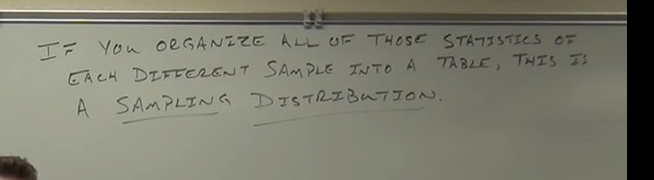 IF YOU ORGANIZE ALL OF THOSE STATISTICS OF
EACH DIFFERENT SAMPLE INTO A TABLE, THIS IS
A SAMPLING DISTRIBUTION.